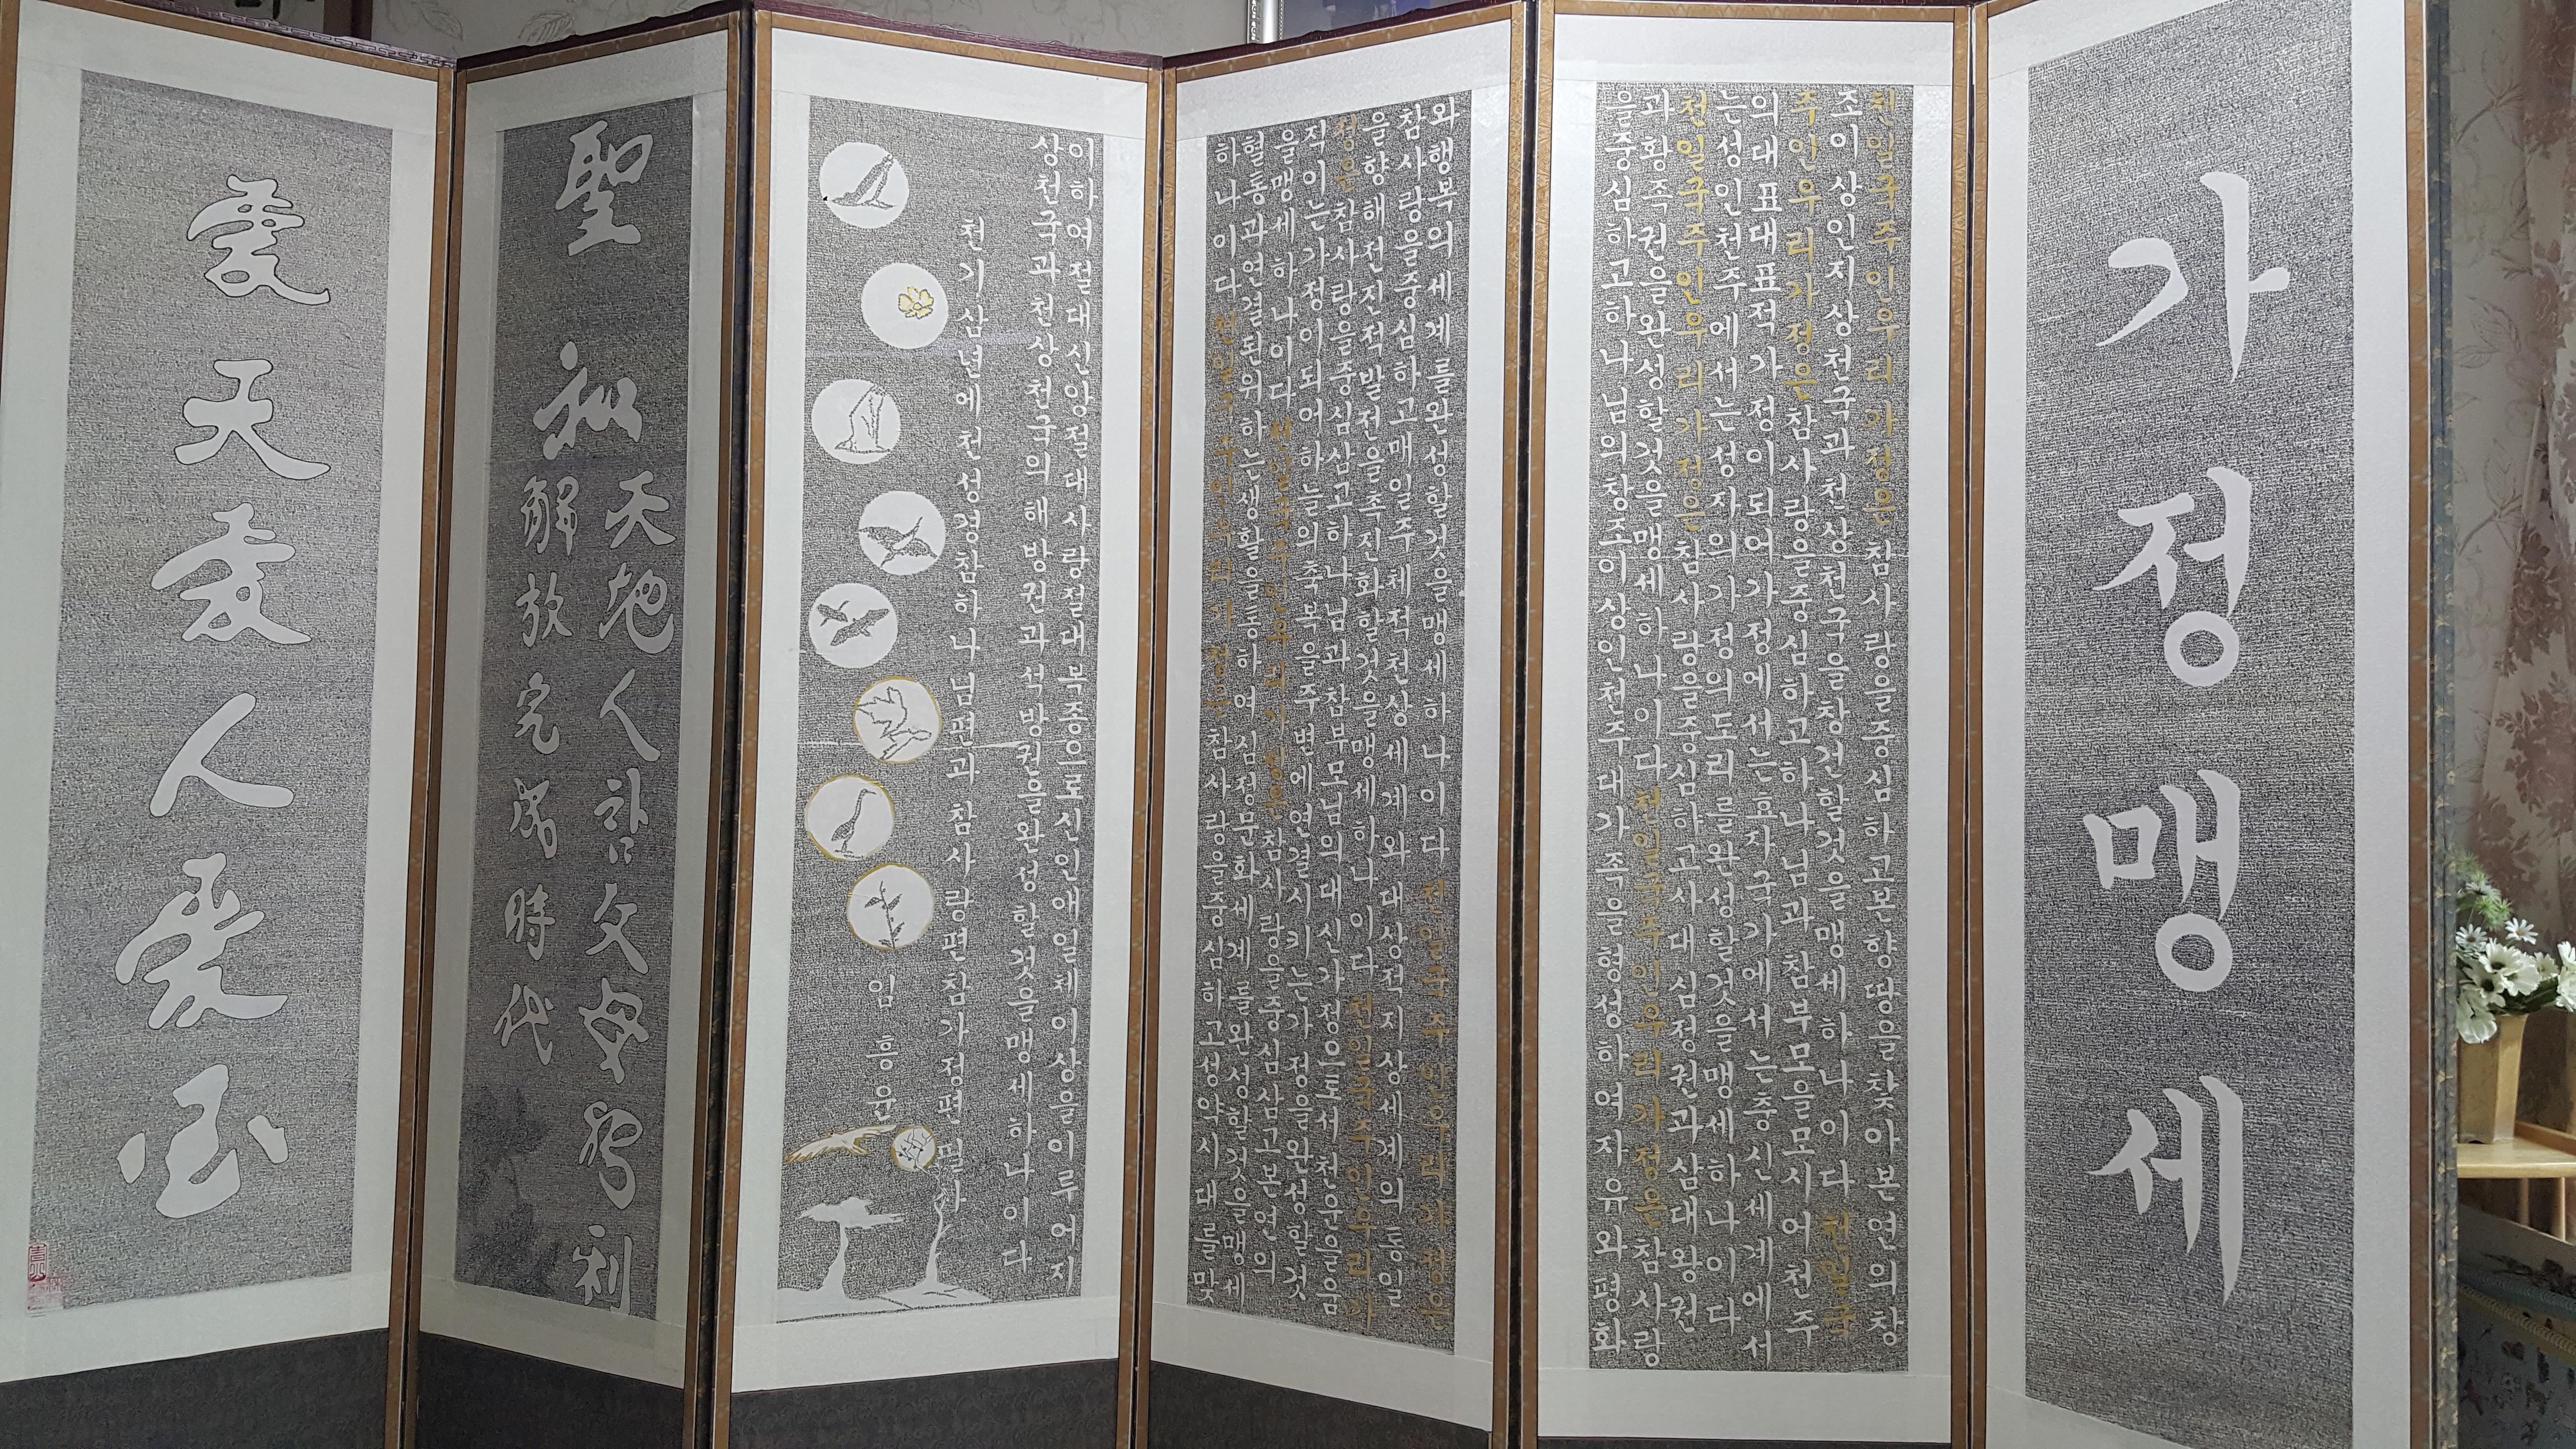 가정맹세
천일국주인우리가정은 참사랑을중심하고본향땅을찾아본연의창
조이상인지상천국과천상천국을창건할것을맹세하나이다 천일국
주인우리가정은 참사랑을중심하고하나님과참부모을모시어천주
의대표대표적가정이되어가정에서는효자국가에서는충신세계에서
는성인천주에서는성자의가정의도리를완성할것을맹세하나이다
천일국주인우리가정은참사랑을중심하고사대심정권과삼대왕권
과황족권을완성할것을맹세하나이다 천일국주인우리가정은참사랑
을중심하고하나님의창조이상인천주대가족을형성하여자유와평화
와행복의세계를완성할것을맹세하나이다 천일국주인우리가정은
참사랑을중심하고매일주체적천상세계와대상적지상세계의통일
을향해전진적발전을촉진화할것을맹세하나이다 천일국주인우리가
정은 참사랑을중심삼고하나님과참부모님의대신가정으로서천운을움
직이는가정이되어하늘의축복을주변에연결시키는가정을완성할것
을맹세하나이다 천일국주인우리가정은참사랑을중심삼고본연의
혈통과연결된위하는생활을통하여심정문화세계를완성할것을맹세
하나이다 천일국주인우리가정은 참사랑을중심하고성약시대를맞
이하여절대신앙절대사랑절대복종으로신인애일체이상을이루어지
상천국과천상천국의해방권과석방권을완성할것을맹세하나이다
천기삼년에천성경참하나님편과 참사랑편참가정편필사
임흥운
聖和天地人참父母勝利
解放完成時代
愛天愛人愛國